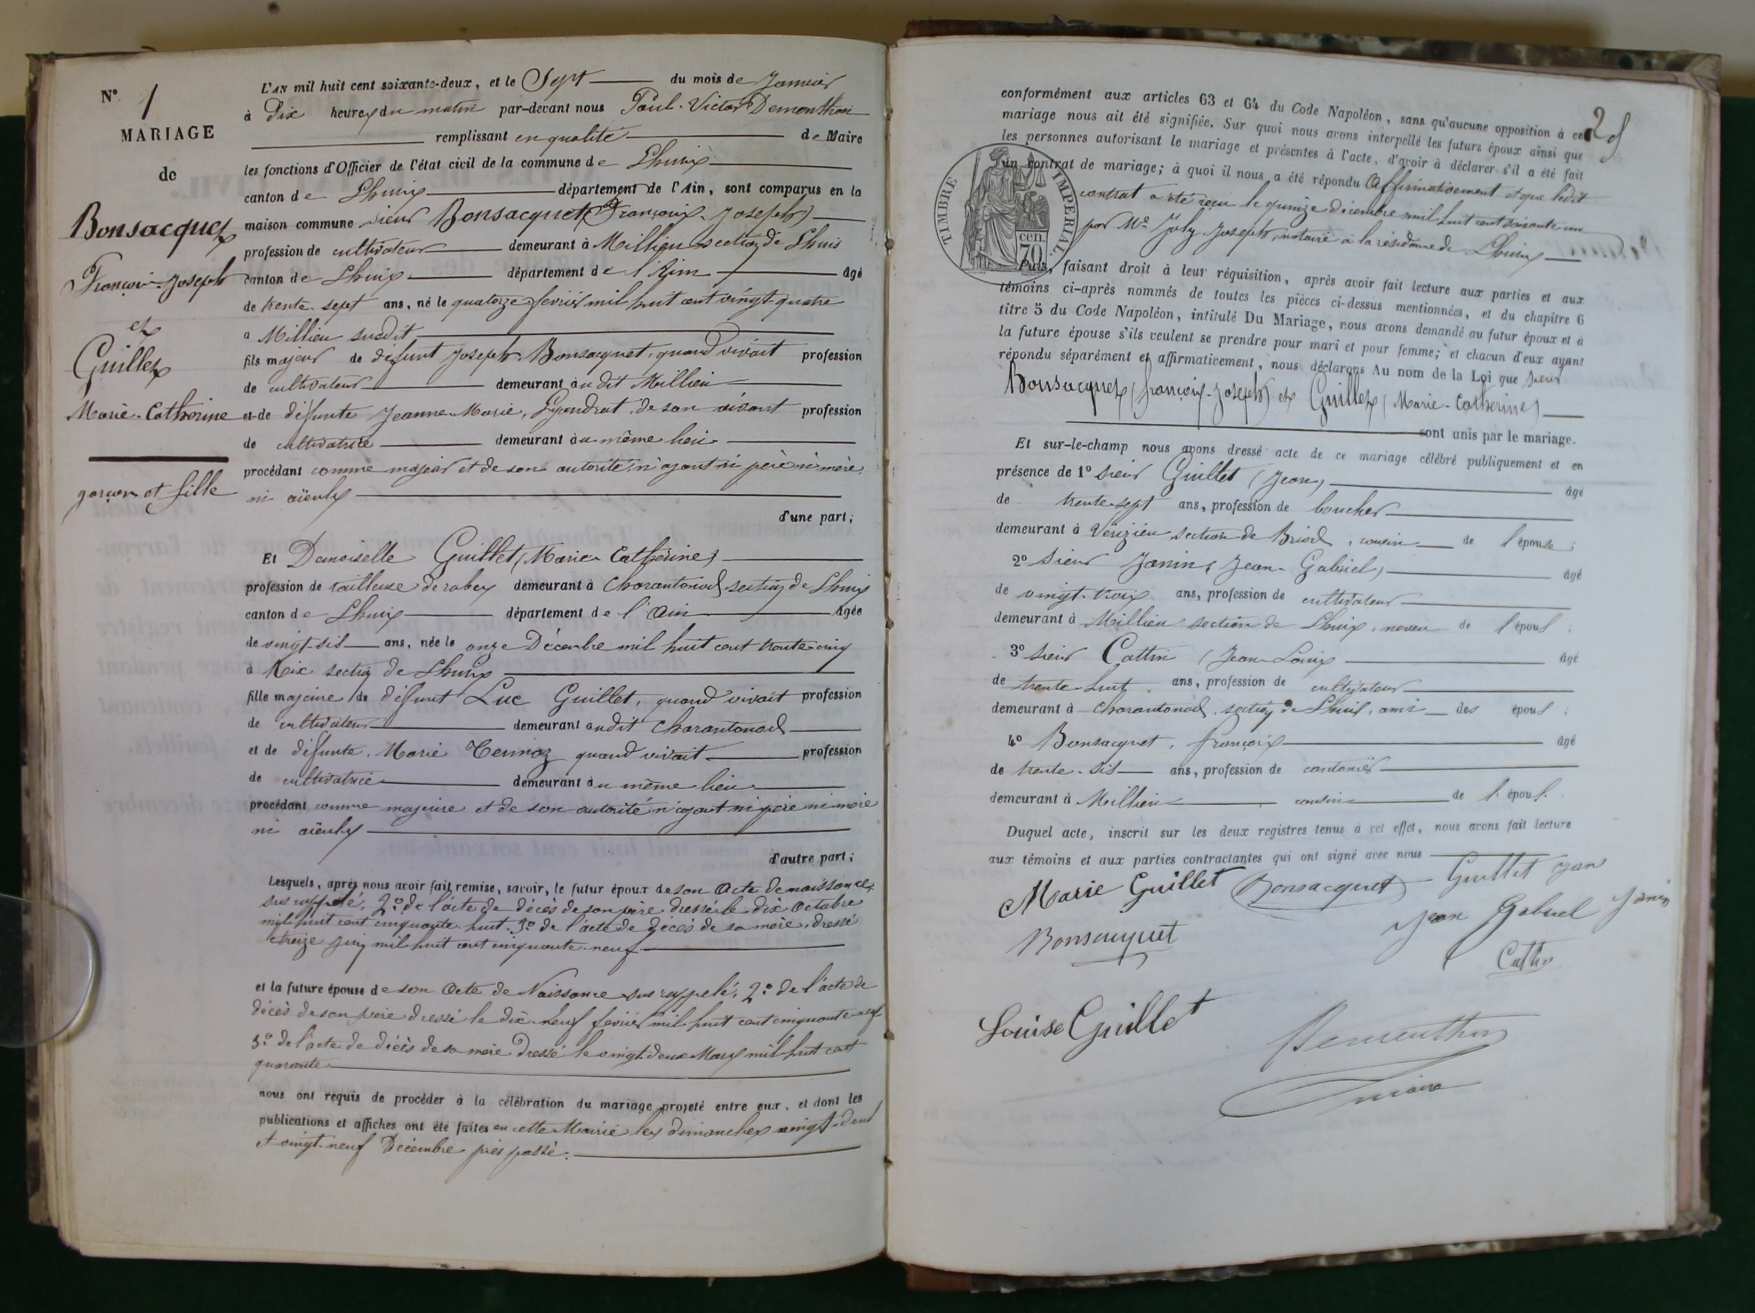 N° 1
MARIAGE
de
Bonsacquet
François-Joseph
et
Guillet
Marie-Catherine
garçon et fille
L'AN mil huit cent soixante-deux, et le Sept du mois de Janvier
à Dix heures du matin par-devant nous Paul-Victor Demonthoux
remplissant en qualité de Maire
les fonctions d'Officier de l'état civil de la commune de Lhuis
canton de Lhuis département de l'Ain, sont comparus en la
maison commune sieur Bonsacquet (François-Joseph)
profession de cultivateur demeurant à Millieu section de Lhuis
canton de Lhuis département de l'Ain âgé
de trente-sept ans, né le quatorze février mil huit cent vingt-quatre
à Millieu susdit
fils majeur de défunt Joseph Bonsacquet, quand vivait profession
de cultivateur demeurant au dit Millieu
et de défunte Jeanne-Marie, de son vivant profession
de cultivatrice demeurant au même lieu
procédant comme majeur et de son autorité n'ayant ni père ni mère
ni aïeuls
d'une part;
Et Demoiselle Guillet (Marie-Catherine)
profession de tailleuse de robes demeurant à Charantonod section de Lhuis
canton de Lhuis département de l'Ain âgée
de vingt-six ans, née le onze Décembre mil huit cent trente-cinq
à Rix section de Lhuis
fille majeure de défunt Luc Guillet, quand vivait profession
de cultivateur demeurant au dit Charantonod
et de défunte Marie quand vivait profession
de cultivatrice demeurant au même lieu
procédant comme majeure et de son autorité n'ayant ni père ni mère
ni aïeuls
d'autre part;
Lesquels, après nous avoir fait remise, savoir, le futur époux de son Acte de naissance
sus rappelé, 2° de l'acte de décès de son père dressé le dix Octobre
mil huit cent cinquante-huit. 3° de l'acte de décès de sa mère, dressé
treize juin mil huit cent cinquante-neuf
et la future épouse de son Acte de Naissance sus rappelé, 2° de l'acte de
décès de son père dressé le dix-neuf février mil huit cent cinquante neuf
3° de l'acte de décès de sa mère dressé le vingt deux Mars mil huit cent
quarante
nous ont requis de procéder à la célébration du mariage projeté entre eux, et dont les
publications et affiches ont été faites en cette Mairie les dimanches vingt-deux
et vingt-neuf Décembre près passé.
2
conformément aux articles 63 et 64 du Code Napoléon, sans qu'aucune opposition à ce
mariage nous ait été signifiée. Sur quoi nous avons interpellé les futurs époux ainsi que
les personnes autorisant le mariage et présentes à l'acte, d'avoir à déclarer s'il a été fait
un contrat de mariage; à quoi il nous a été répondu Affirmativement et que ledit
contrat a été reçu le quinze décembre mil huit cent soixante un
par Me Joly Joseph, notaire à la résidence de Lhuis
TIMBRE IMPERIAL
70 cen.
Puis, faisant droit à leur réquisition, après avoir fait lecture aux parties et aux
témoins ci-après nommés de toutes les pièces ci-dessus mentionnées, et du chapitre 6
titre 5 du Code Napoléon, intitulé Du Mariage, nous avons demandé au futur époux et à
la future épouse s'ils veulent se prendre pour mari et pour femme; et chacun d'eux ayant
répondu séparément et affirmativement, nous déclarons Au nom de la Loi que sieur
Bonsacquet (François-Joseph) et Guillet (Marie-Catherine)
sont unis par le mariage.
Et sur-le-champ nous avons dressé acte de ce mariage célébré publiquement et en
présence de 1° Sieur Guillet (Jean) âgé
de trente-sept ans, profession de boucher
demeurant à Vérizieu section de Briord, cousin de l'épouse;
2° Sieur Janin (Jean-Gabriel) âgé
de vingt-trois ans, profession de cultivateur
demeurant à Millieu section de Lhuis, neveu de l'époux;
3° Sieur Cattin (Jean-Louis) âgé
de trente-huit ans, profession de cultivateur
demeurant à Charantonod, section de Lhuis, ami des époux;
4° Bonsacquet, françois âgé
de trente-six ans, profession de cantonier
demeurant à Millieu cousin de l'époux.
Duquel acte, inscrit sur les deux registres tenus à cet effet, nous avons fait lecture
aux témoins et aux parties contractantes qui ont signé avec nous
Marie Guillet Bonsacquet Guillet jean
Bonsacquet Jean Gabriel Janin
Cattin
Louise Guillet
Demonthoux
maire